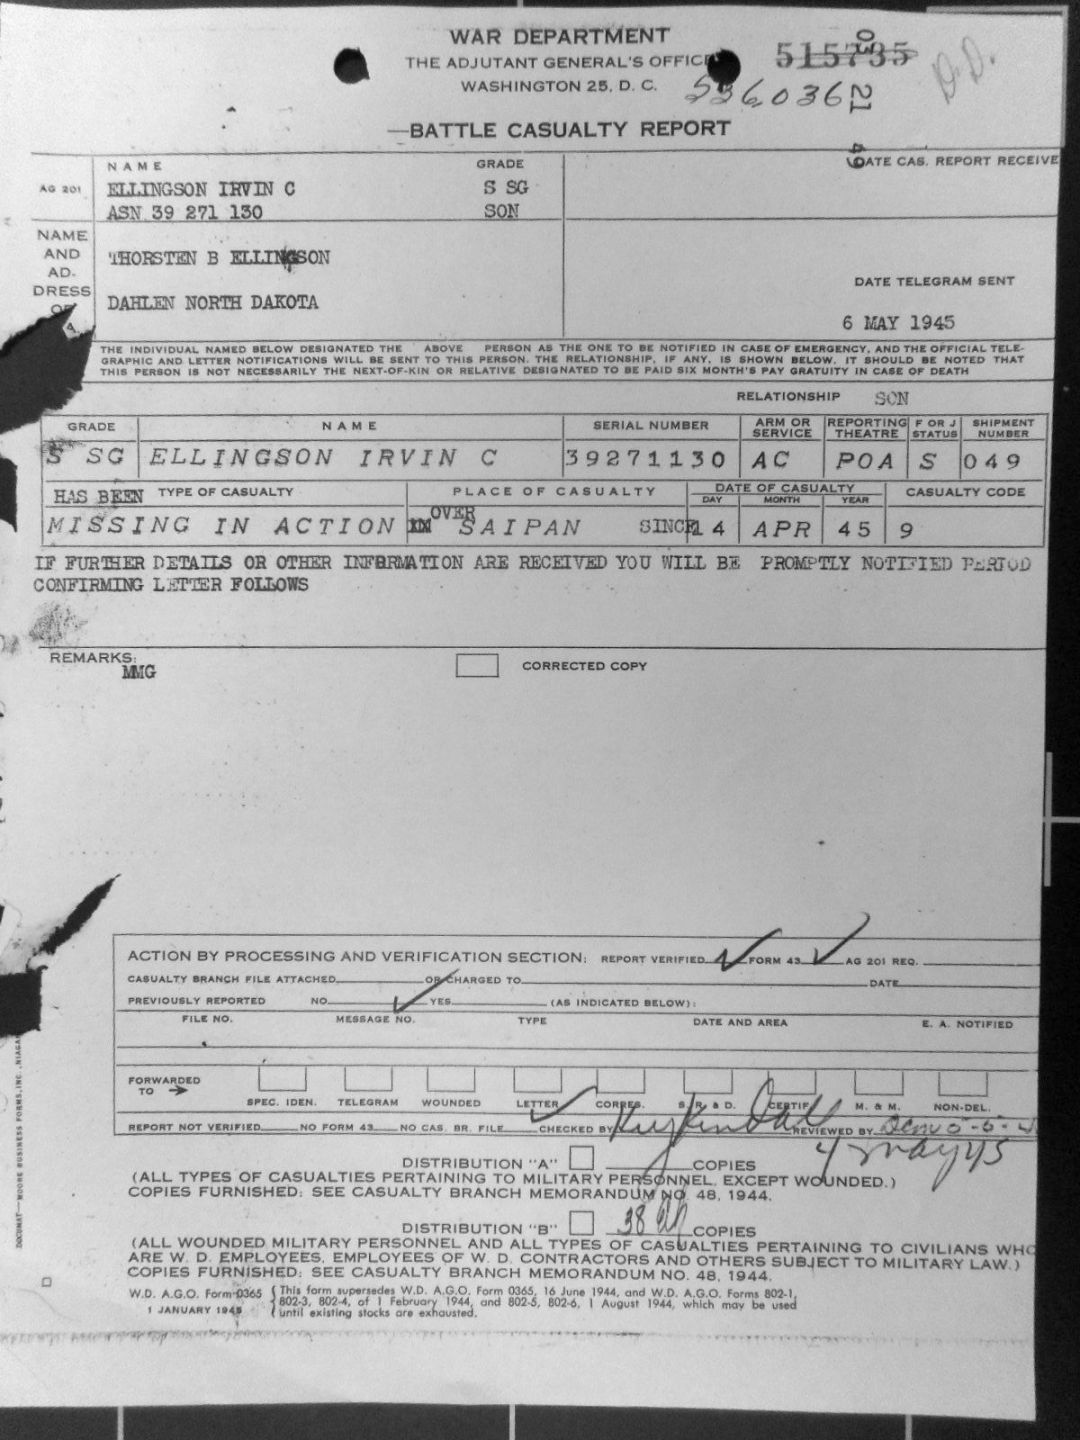 WAR DEPARTMENT
THE ADJUTANT GENERAL'S OFFICE
WASHINGTON 25, D. C.
515735
536036
D.D.
03 21 49
—BATTLE CASUALTY REPORT
NAME GRADE DATE CAS. REPORT RECEIVE
AG 201 ELLINGSON IRVIN C S SG
ASN 39 271 130 SON
NAME AND AD- DRESS OF
THORSTEN B ELLINGSON
DAHLEN NORTH DAKOTA
DATE TELEGRAM SENT
6 MAY 1945
THE INDIVIDUAL NAMED BELOW DESIGNATED THE ABOVE PERSON AS THE ONE TO BE NOTIFIED IN CASE OF EMERGENCY, AND THE OFFICIAL TELE-
GRAPHIC AND LETTER NOTIFICATIONS WILL BE SENT TO THIS PERSON. THE RELATIONSHIP, IF ANY, IS SHOWN BELOW. IT SHOULD BE NOTED THAT
THIS PERSON IS NOT NECESSARILY THE NEXT-OF-KIN OR RELATIVE DESIGNATED TO BE PAID SIX MONTH'S PAY GRATUITY IN CASE OF DEATH
RELATIONSHIP SON
GRADE NAME SERIAL NUMBER ARM OR SERVICE REPORTING THEATRE F OR J STATUS SHIPMENT NUMBER
S SG ELLINGSON IRVIN C 39271130 AC POA S 049
HAS BEEN TYPE OF CASUALTY PLACE OF CASUALTY DATE OF CASUALTY CASUALTY CODE
DAY MONTH YEAR
MISSING IN ACTION OVER SAIPAN SINCE 14 APR 45 9
IF FURTHER DETAILS OR OTHER INFBRMATION ARE RECEIVED YOU WILL BE PROMPTLY NOTIFIED PERIOD
CONFIRMING LETTER FOLLOWS
REMARKS:
MMG
CORRECTED COPY
ACTION BY PROCESSING AND VERIFICATION SECTION: REPORT VERIFIED FORM 43 AG 201 REQ.
CASUALTY BRANCH FILE ATTACHED OR CHARGED TO DATE
PREVIOUSLY REPORTED NO YES (AS INDICATED BELOW):
FILE NO. MESSAGE NO. TYPE DATE AND AREA E. A. NOTIFIED
FORWARDED TO →
SPEC. IDEN. TELEGRAM WOUNDED LETTER CORRES. S. R. & D. CERTIF. M. & M. NON-DEL.
REPORT NOT VERIFIED NO FORM 43 NO CAS. BR. FILE CHECKED BY Kuykendall REVIEWED BY
4 may 45
DISTRIBUTION "A" COPIES
(ALL TYPES OF CASUALTIES PERTAINING TO MILITARY PERSONNEL, EXCEPT WOUNDED.)
COPIES FURNISHED: SEE CASUALTY BRANCH MEMORANDUM NO. 48, 1944.
DISTRIBUTION "B" 38 COPIES
(ALL WOUNDED MILITARY PERSONNEL AND ALL TYPES OF CASUALTIES PERTAINING TO CIVILIANS WHO
ARE W. D. EMPLOYEES, EMPLOYEES OF W. D. CONTRACTORS AND OTHERS SUBJECT TO MILITARY LAW.)
COPIES FURNISHED: SEE CASUALTY BRANCH MEMORANDUM NO. 48, 1944.
W.D. A.G.O. Form 0365
1 JANUARY 1945
This form supersedes W.D. A.G.O. Form 0365, 16 June 1944, and W.D. A.G.O. Forms 802-1,
802-3, 802-4, of 1 February 1944, and 802-5, 802-6, 1 August 1944, which may be used
until existing stocks are exhausted.
DOCUMAT—MOORE BUSINESS FORMS, INC., NIAGA